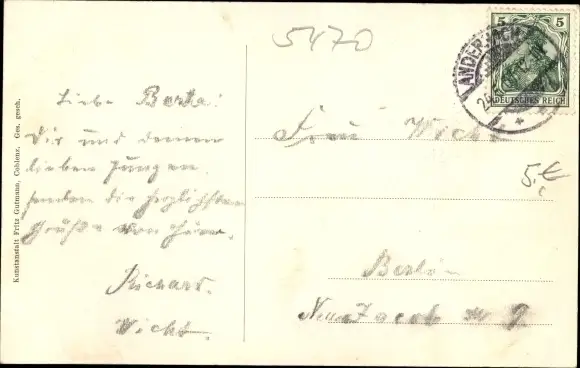 5470
Liebe Berta!
Dir und deinen
lieben Jungen
senden die herzlichsten
Grüße von hier.
Richard
Wicht.
Frau Wicht
Berlin
Neue Jacob 9
5.€
ANDERNACH
5 5
DEUTSCHES REICH
Kunstanstalt Fritz Gutmann, Coblenz. Ges. gesch.